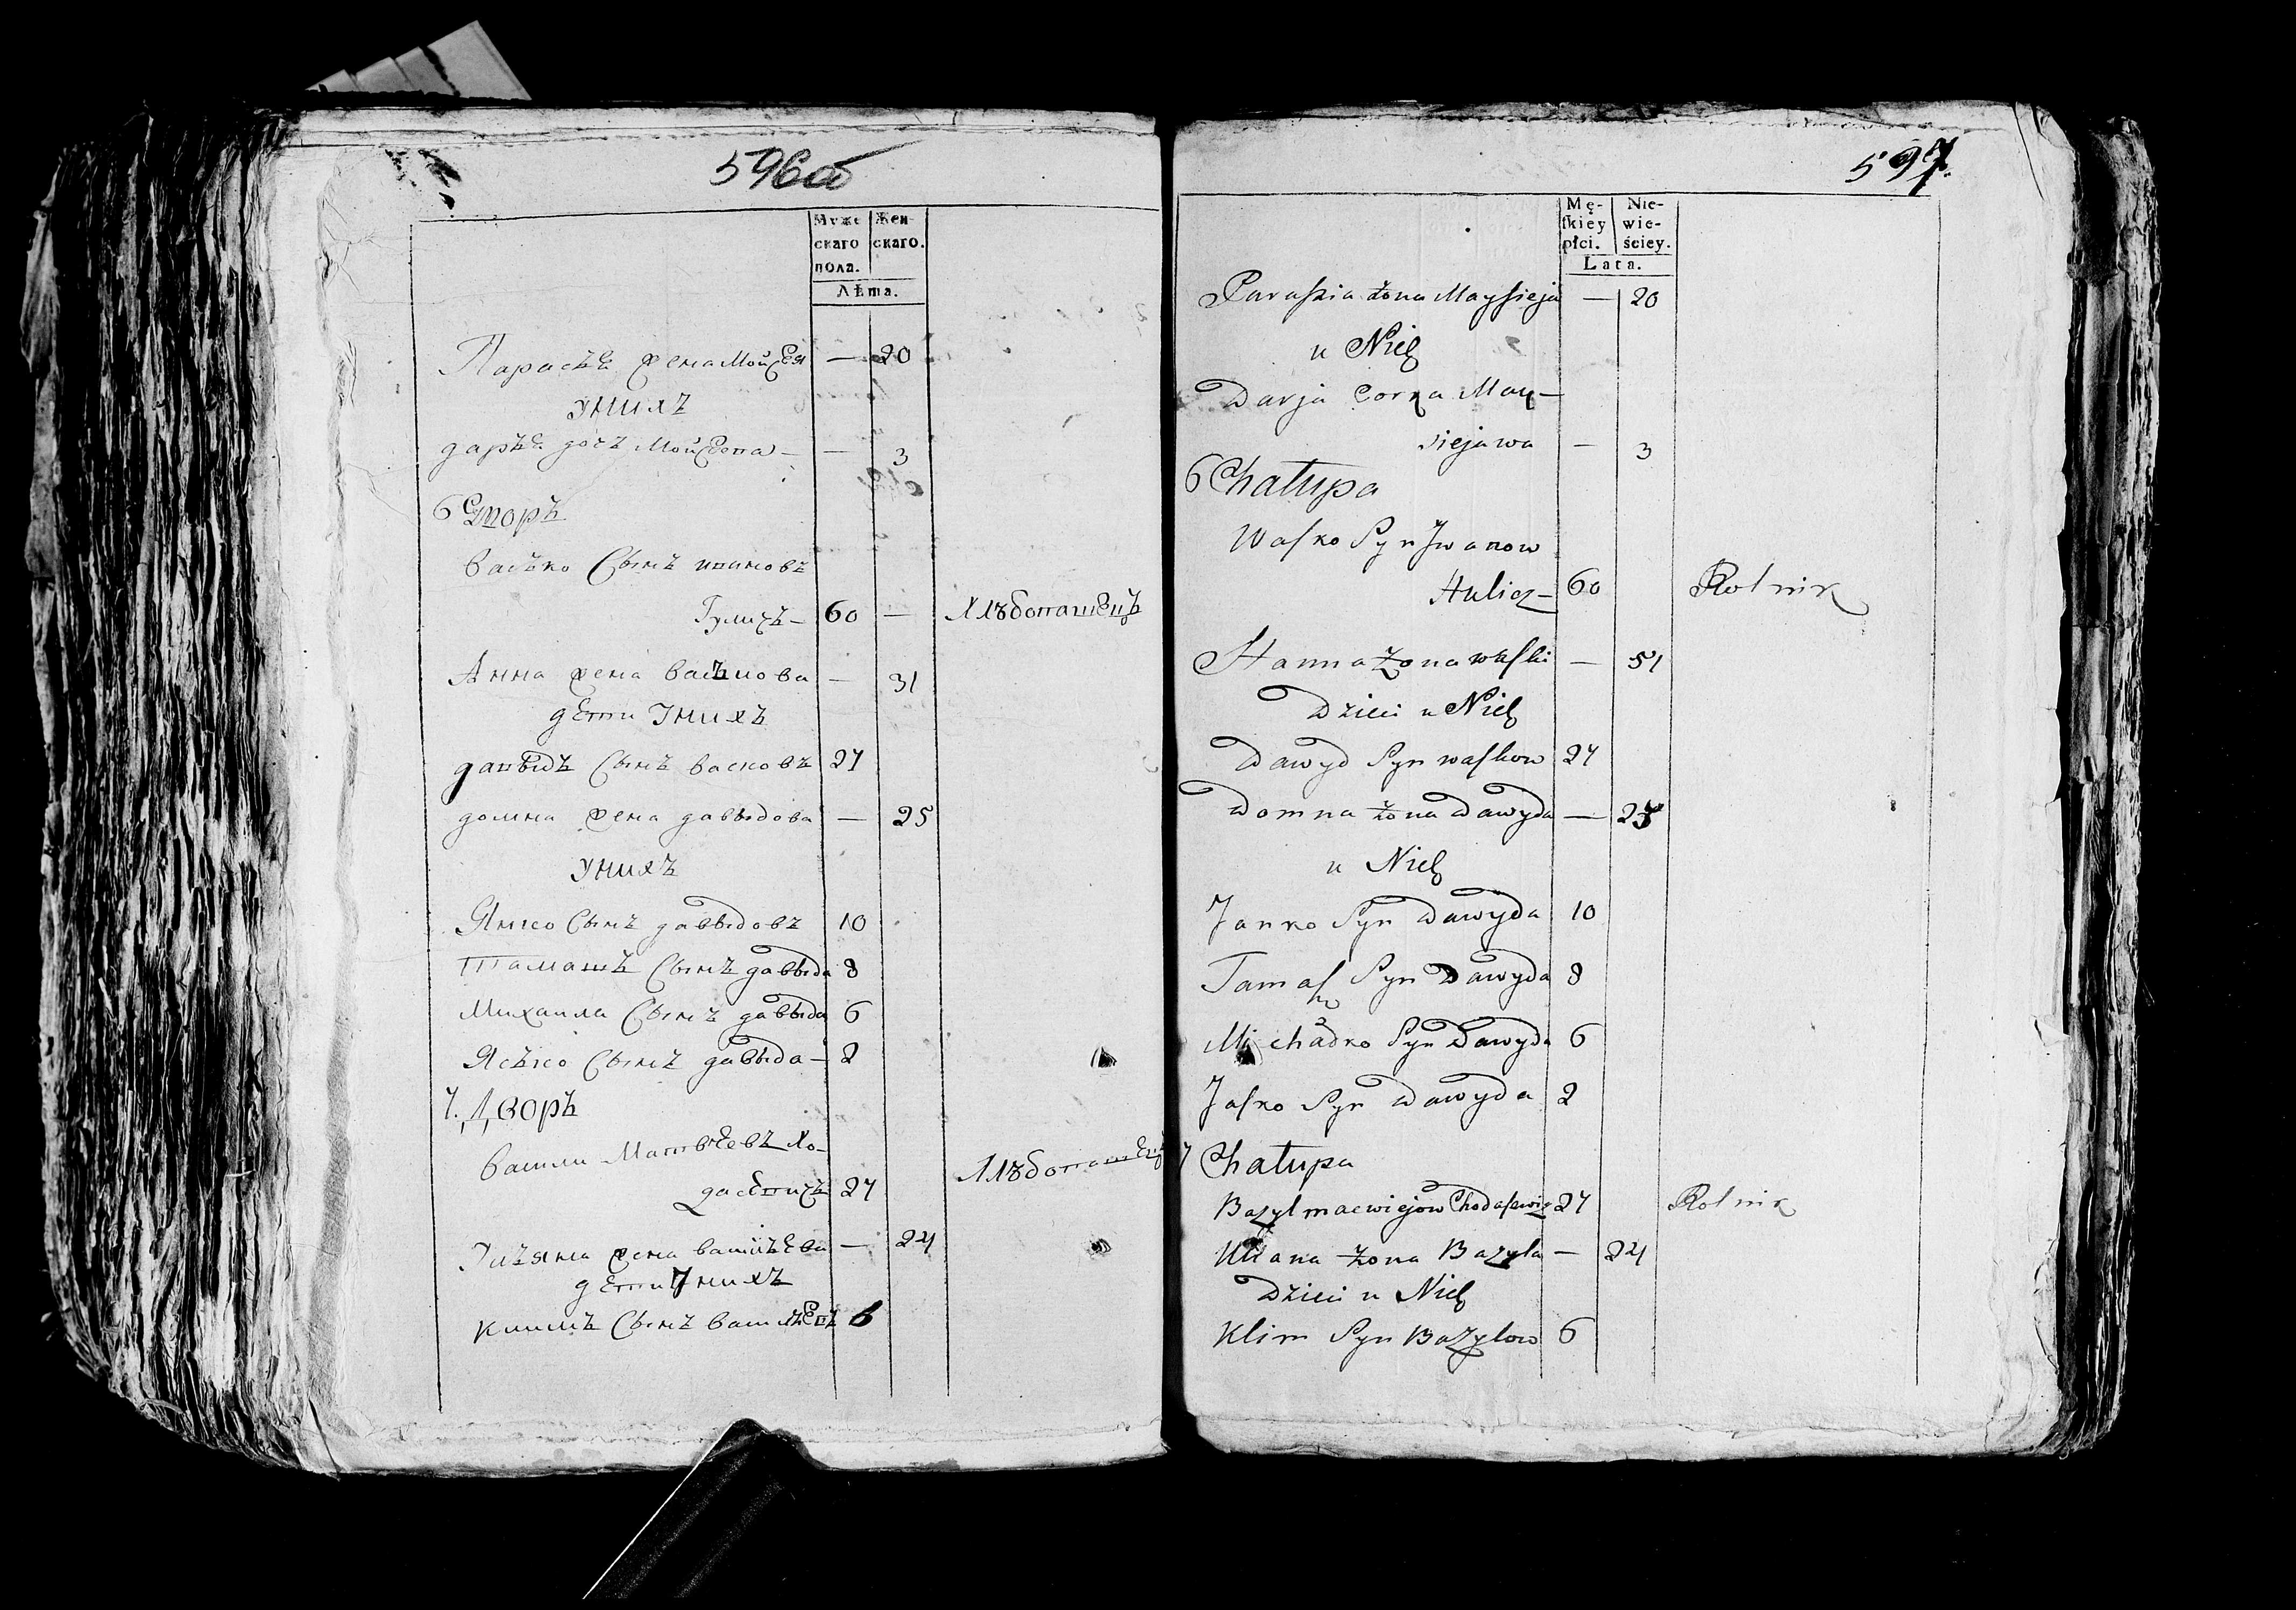 596об
Муже
скаго
пола.
Жен-
скаго.
Лѣта.
Парасъка жена Мойсея — 20
У нихъ
дарья дочъ Мойсеева — — 3
6 Дворъ
васько Сынъ ивановъ
Гуличъ — 60 — Хлѣбопашецъ
Анна жена васькова — 31
дети У нихъ
давыдъ Сынъ васковъ 27
домна жена давыдова — 25
У нихъ
Янко Сынъ давыдовъ 10
Тамашъ Сынъ давыда 8
Михаила Сынъ давыда 6
Ясько Сынъ давыда — 2
7. Дворъ
васили Матвеевъ Хо-
дасевичъ 27 Хлѣбопашецъ
Ульяна жена васильева — 24
дети У нихъ
климъ Сынъ васильевъ 6
597.
Mę-
skiey
płci.
Nie-
wie-
ściey.
Lata.
Paraskia żona Maysieja — 20
u Nich
Darja Corka May-
siejawa — 3
6 Chałupa
Wasko Syn Jwanow
Hulicz — 60 Rolnik
Hanna Żona waski — 51
Dzieci u Nich
Dawyd Syn waskow 27
Domna żona Dawyda — 25
u Nich
Janko Syn Dawyda 10
Tamasz Syn Dawyda 8
Michałko Syn Dawyda 6
Jasko Syn Dawyda 2
7 Chałupa
Bazyl maewiejow Chodasewicz 27 Rolnik
Uliana żona Bazyla — 24
Dzieci u Nich
Klim Syn Bazylow 6